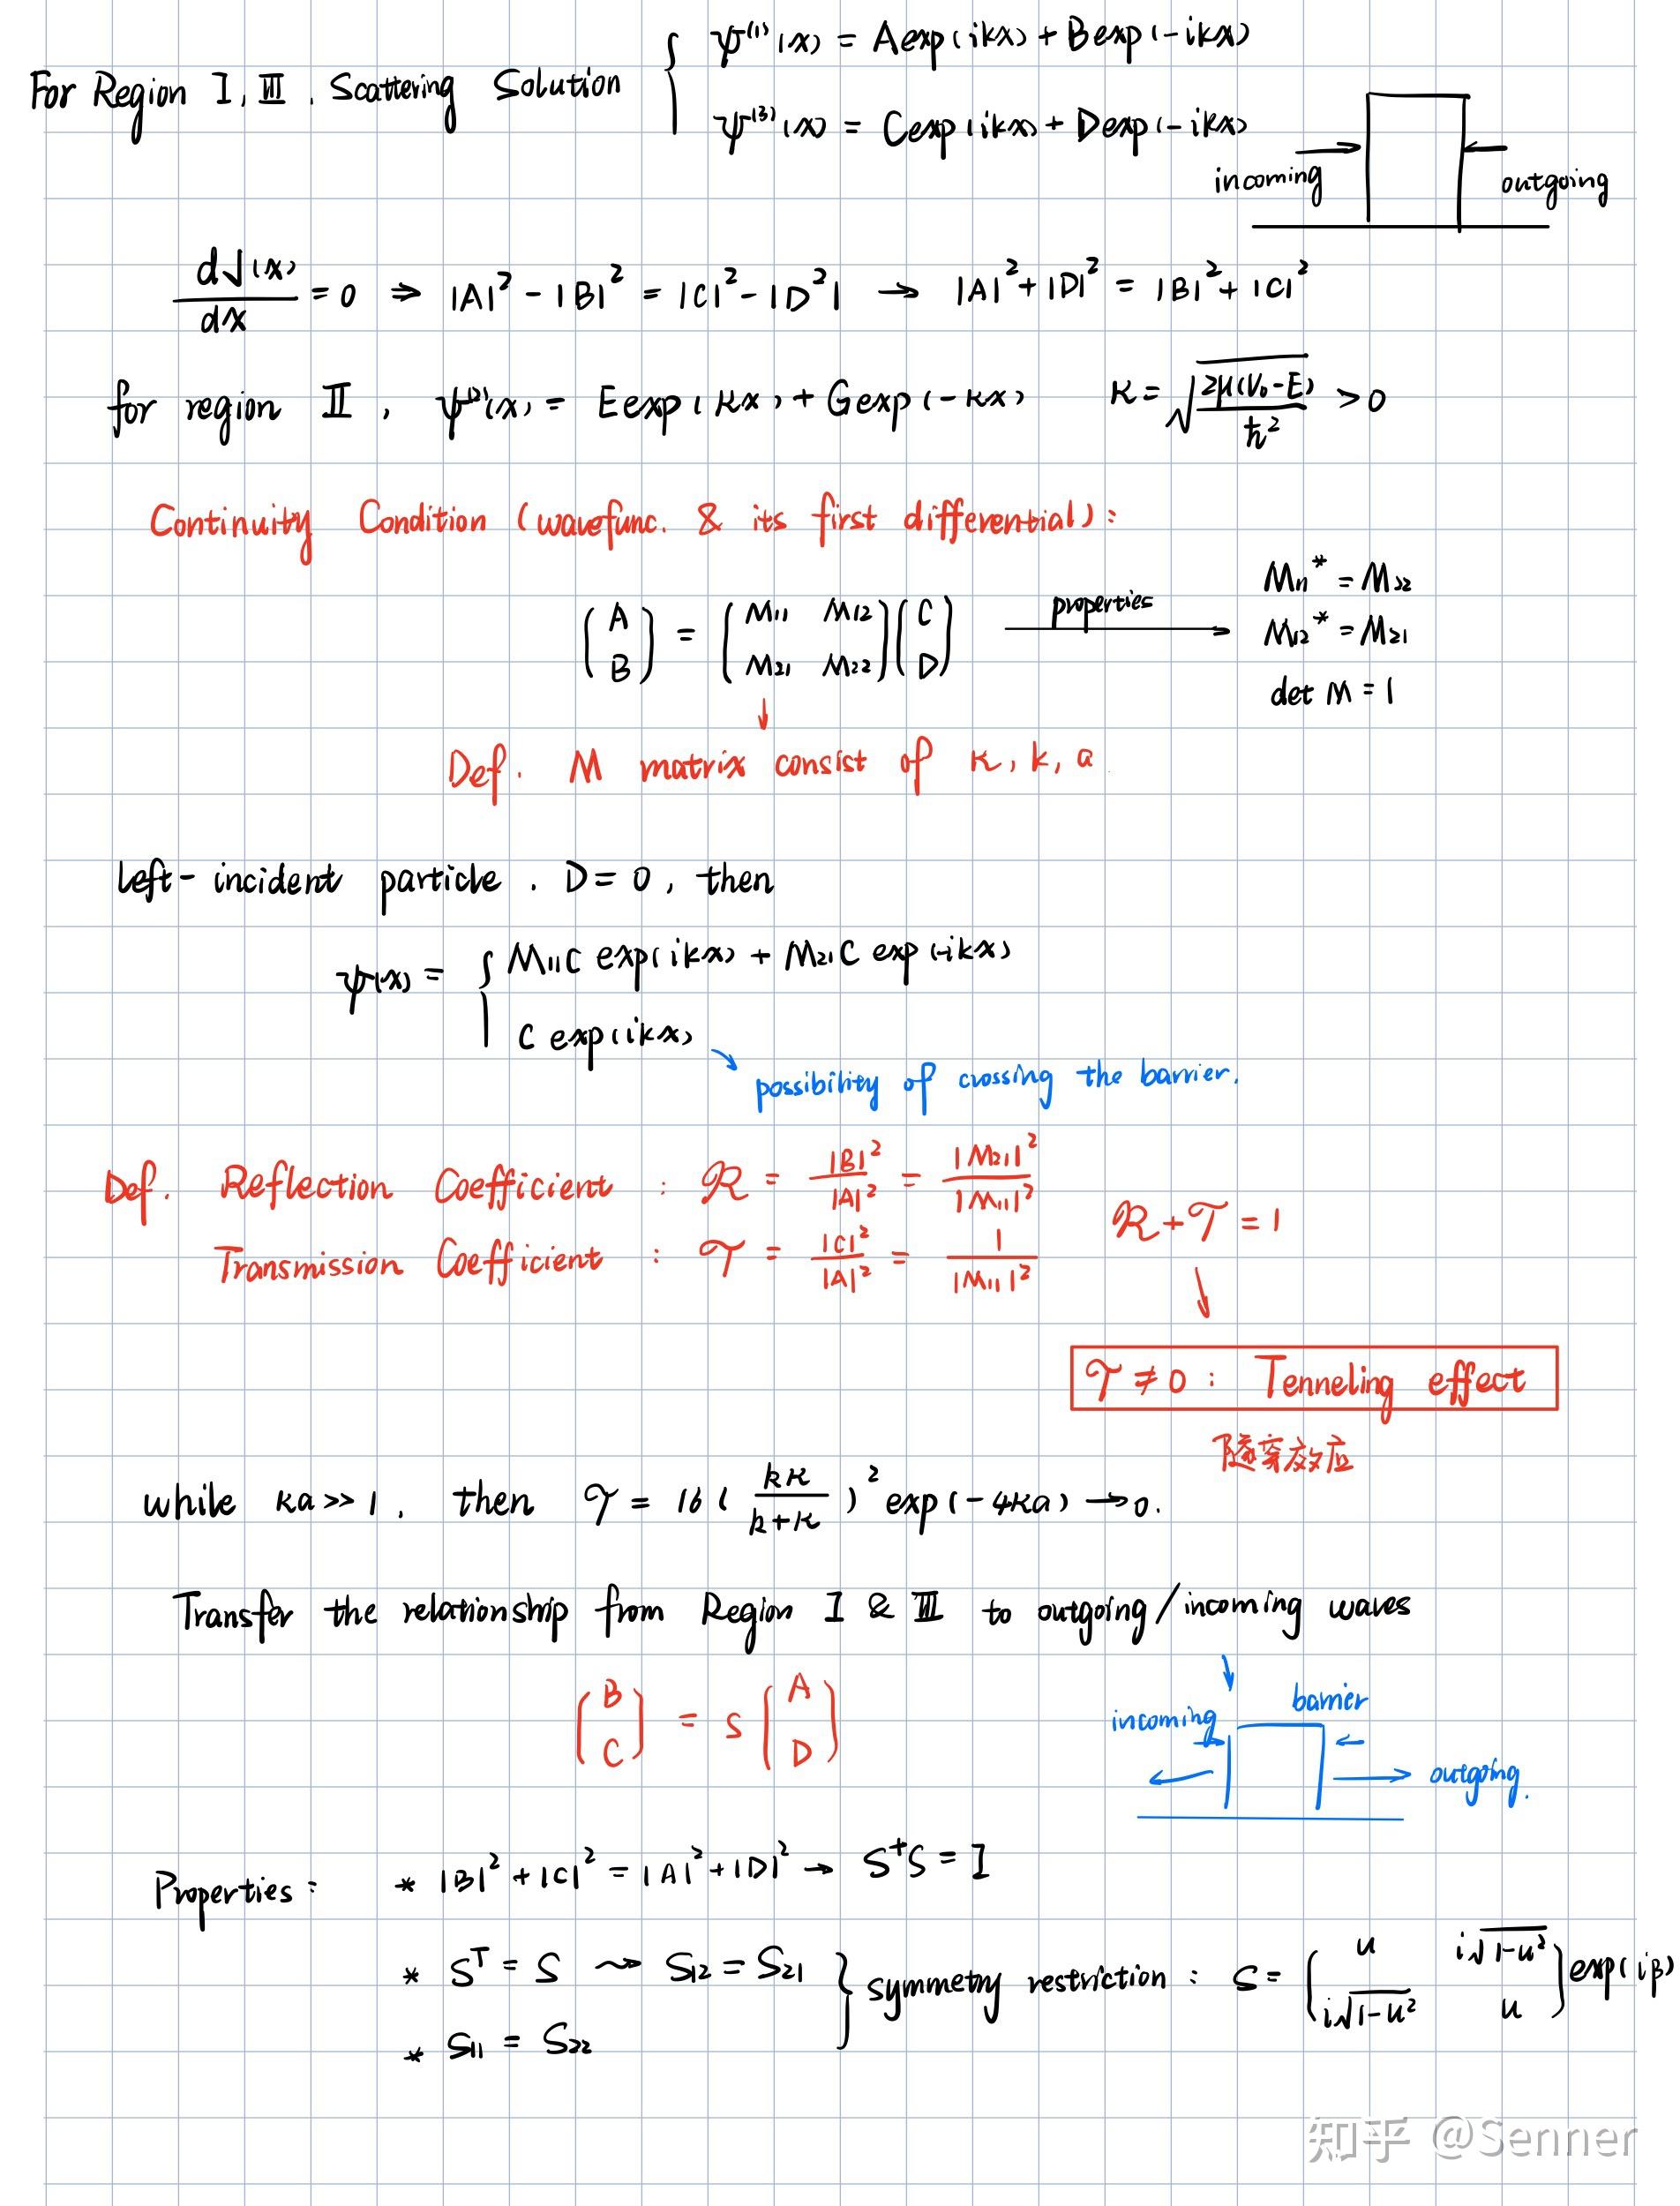 ψ⁽¹⁾(x) = Aexp(ikx) + Bexp(-ikx)
For Region I, III. Scattering Solution
ψ⁽³⁾(x) = Cexp(ikx) + Dexp(-ikx)
incoming outgoing
dJ(x)/dx = 0 ⇒ |A|² - |B|² = |C|² - |D²| → |A|² + |D|² = |B|² + |C|²
for region II, ψ⁽²⁾(x) = Eexp(κx) + Gexp(-κx) κ = √(2μ(V₀-E)/ħ²) > 0
Continuity Condition (wavefunc. & its first differential):
(A B) = (M₁₁ M₁₂ M₂₁ M₂₂)(C D) properties → M₁₁* = M₂₂
M₁₂* = M₂₁
det M = 1
Def. M matrix consist of κ, k, a
left-incident particle. D = 0, then
ψ(x) = { M₁₁C exp(ikx) + M₂₁C exp(-ikx)
C exp(ikx)
possibility of crossing the barrier.
Def. Reflection Coefficient : R = |B|²/|A|² = |M₂₁|²/|M₁₁|²
R + T = 1
Transmission Coefficient : T = |C|²/|A|² = 1/|M₁₁|²
T ≠ 0 : Tenneling effect
隧穿效应
while κa >> 1, then T = 16(kκ/k+κ)² exp(-4κa) → 0.
Transfer the relationship from Region I & III to outgoing/incoming waves
(B C) = S (A D)
incoming barrier
outgoing.
Properties: * |B|² + |C|² = |A|² + |D|² → S⁺S = I
* Sᵀ = S ⇝ S₁₂ = S₂₁
symmetry restriction : S = (u i√1-u² i√1-u² u) exp(iβ)
* S₁₁ = S₂₂
知乎 @Senner